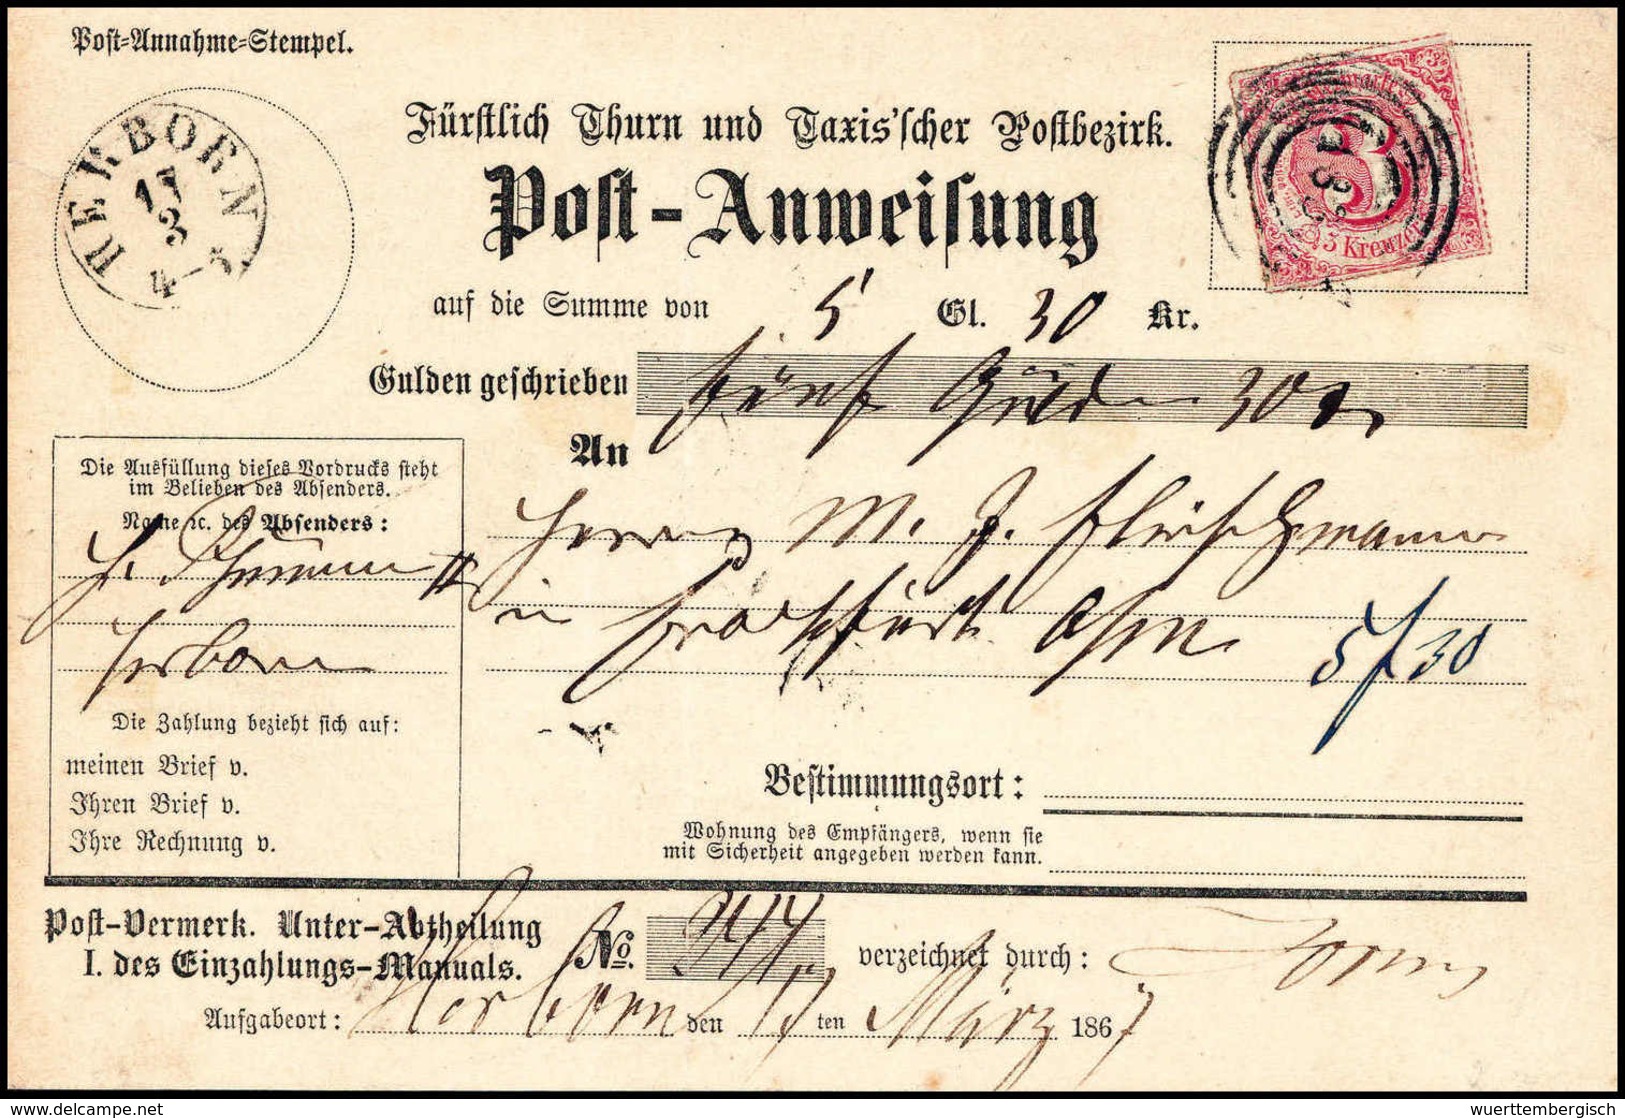 Post-Annahme-Stempel.
HERBORN
17
3
4-5
Fürstlich Thurn und Taxis'scher Postbezirk.
Post-Anweisung
3 Kreuzer
auf die Summe von 5 Gl. 30 Kr.
Gulden geschrieben fünf Guld 30
An
Herrn M. J. Fleischmann
in Frankfurt
5 f 30
Die Ausfüllung dieses Vordrucks steht
im Belieben des Absenders.
Name ꝛc. des Absenders:
Herborn
Die Zahlung bezieht sich auf:
meinen Brief v.
Ihren Brief v.
Ihre Rechnung v.
Bestimmungsort:
Wohnung des Empfängers, wenn sie
mit Sicherheit angegeben werden kann.
Post-Vermerk. Unter-Abtheilung
I. des Einzahlungs-Manuals.
No. 244 verzeichnet durch:
Aufgabeort: Herborn den 17 ten März 1867
wuerttembergisch
www.delcampe.net